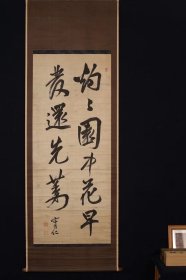 灼々園中花早
發還先萎